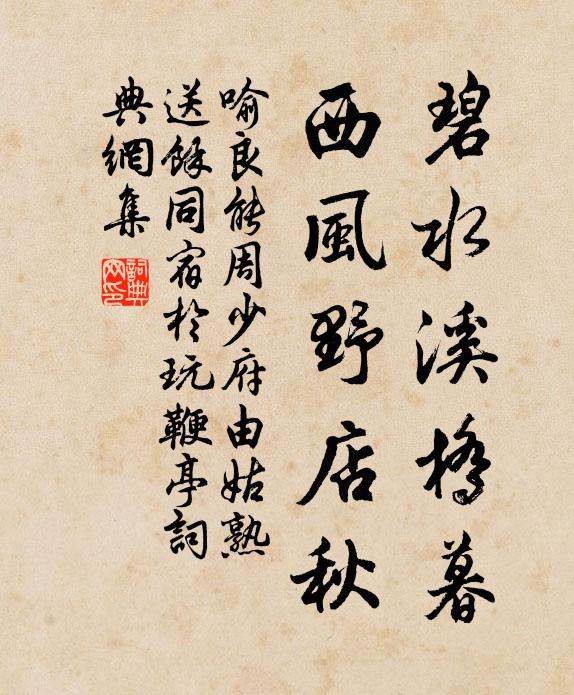 碧水溪橋暮
西風野店秋
喻良能周少府由姑熟
送餘同宿於玩鞭亭詞
典網集
詞典
网印